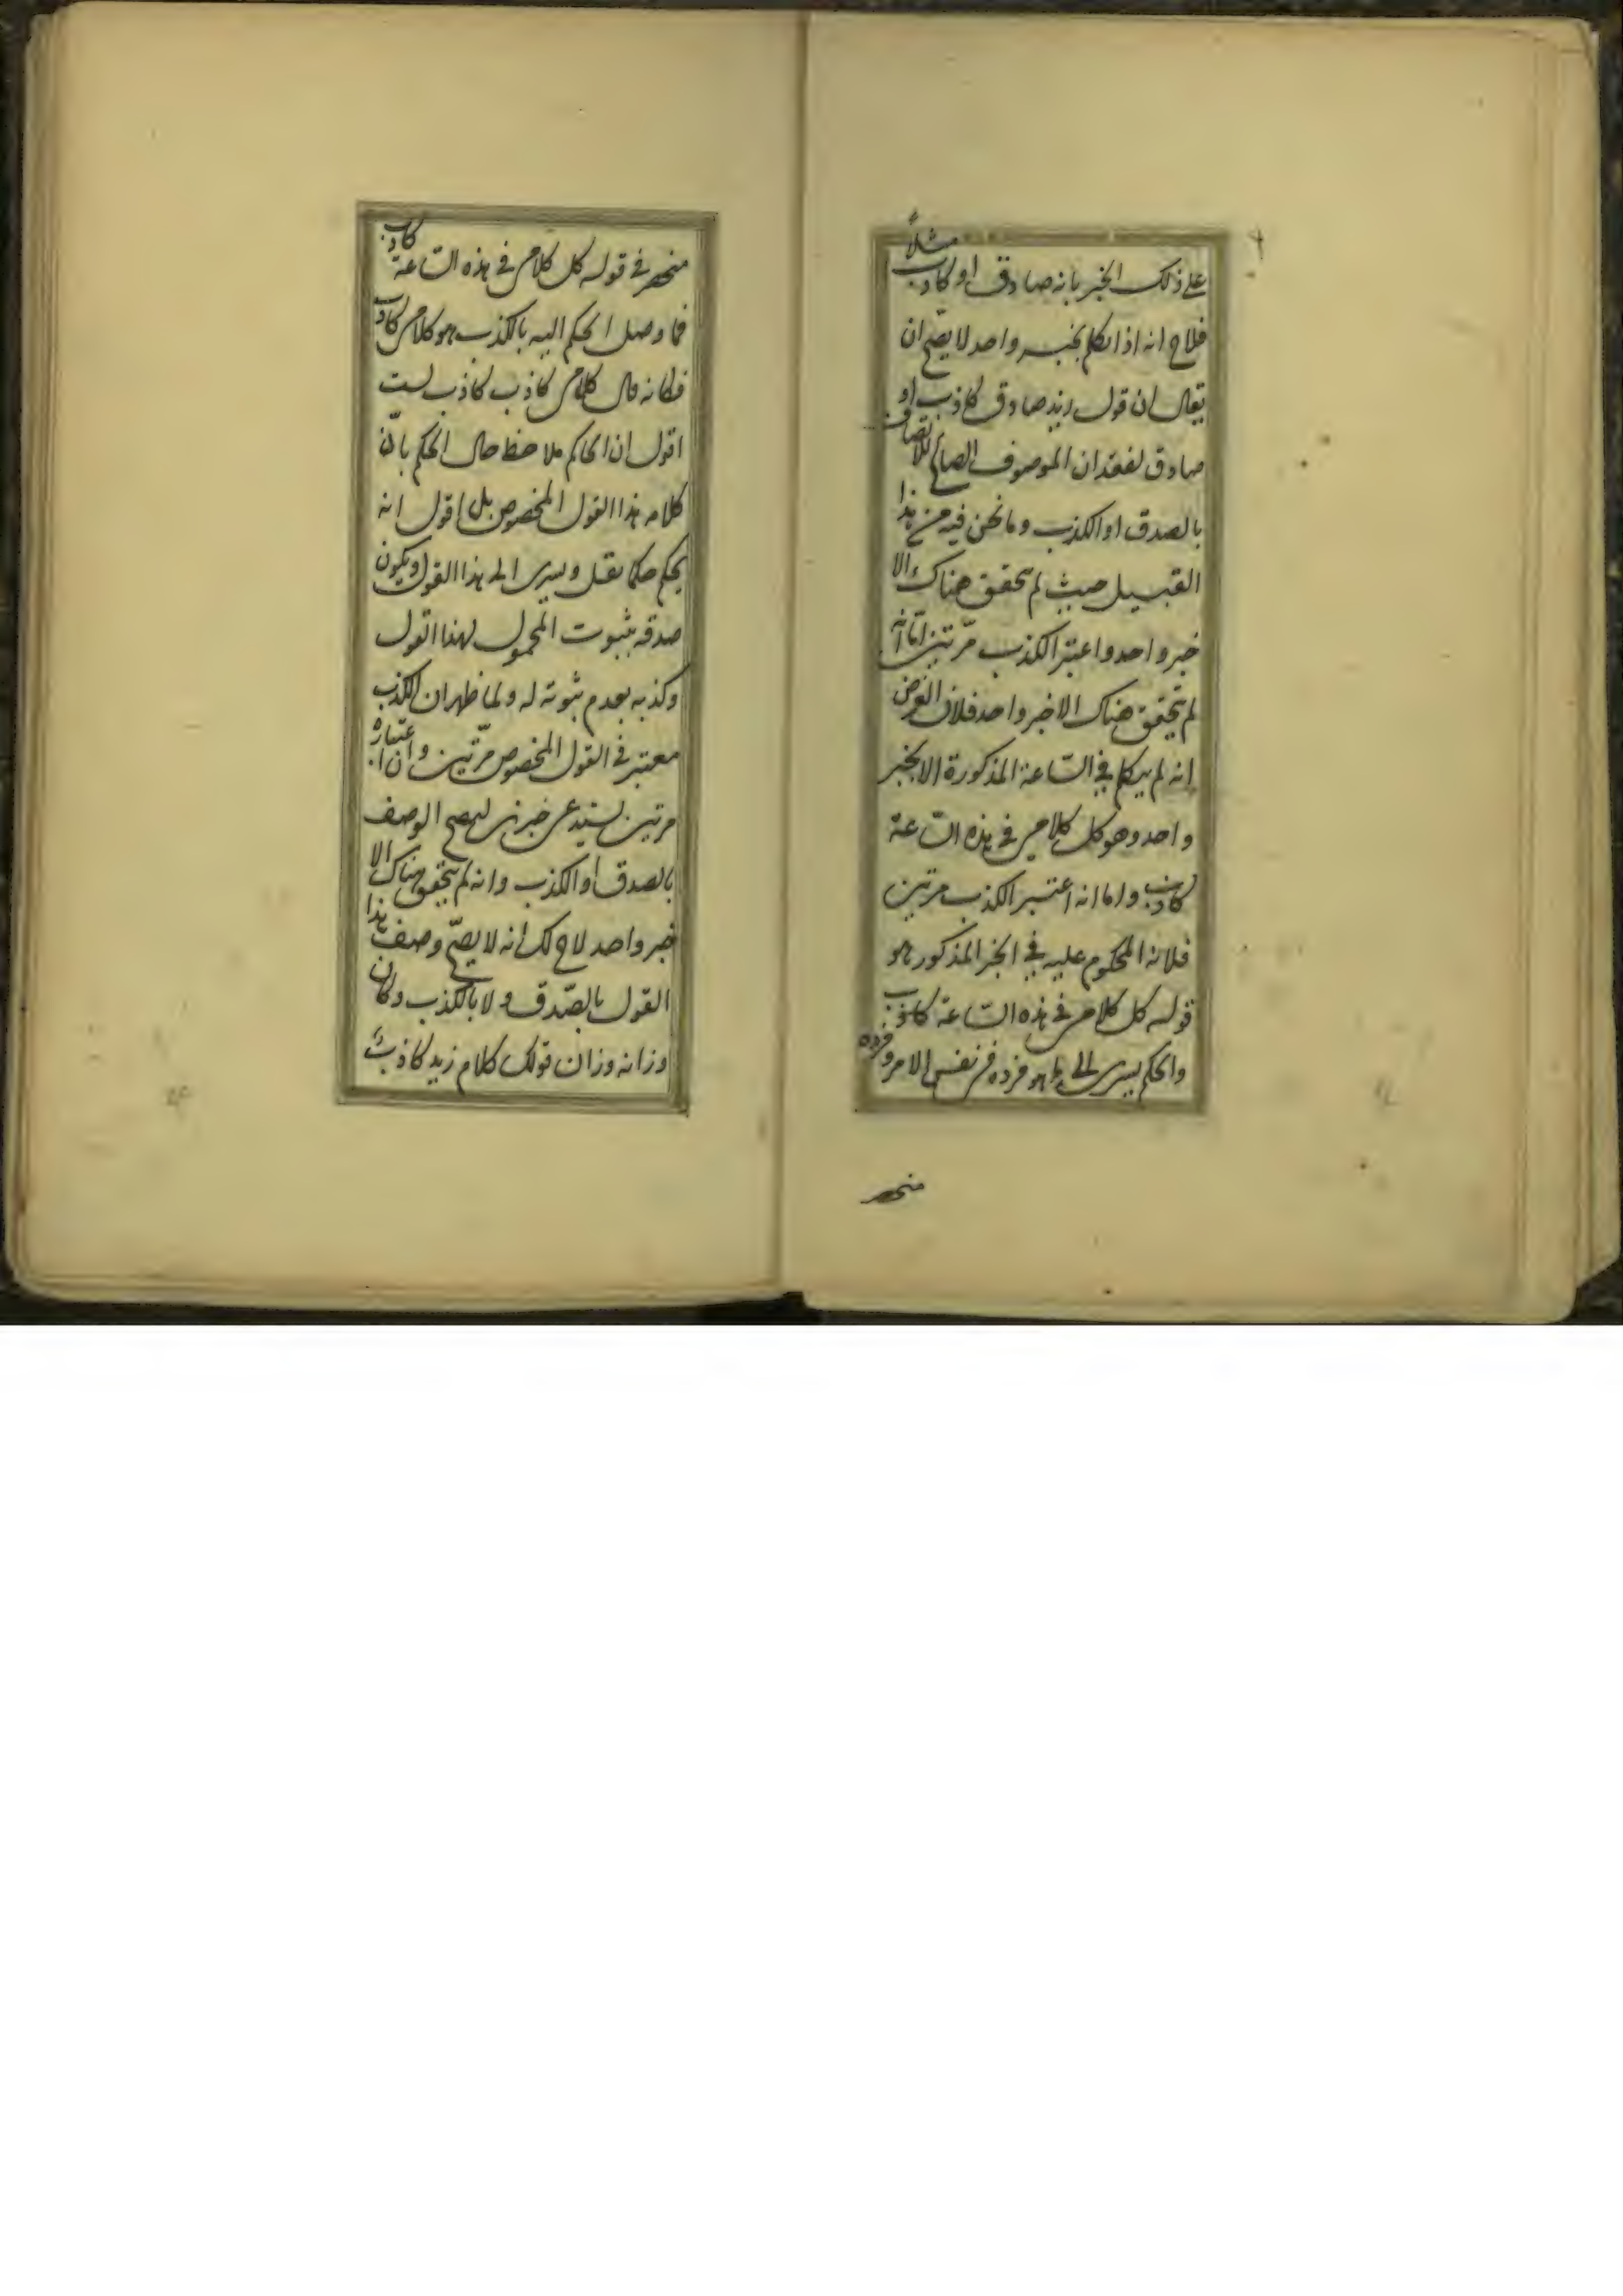 على ذلك الخبر بانه صادق او كاذب مثلاً
فلاح انه اذا تكلم بخبر واحد لا يصّح ان
يقال ان قول زيد صادق كاذب او
صادق لفقدان الموصوف الصالح للاتصاف
بالصدق او الكذب وما نحن فيه من هذا
القبيل حيث لم يتحقق هناك الا
خبر واحد واعتبر الكذب مرّتين امّا انّه
لم يتحقق هناك الا خبر واحد فلان الفرض
انه لم يتكلم في السّاعة المذكورة الا بخبر
واحد وهو كل كلامي في هذه السّاعة
كاذب واما انه اعتبر الكذب مرتين
فلانه المحكوم عليه في الخبر المذكور هو
قوله كل كلامي في هذه السّاعة كاذب
والحكم يسرى الى ما هو فرده في نفس الامر وفرده
منحصر
منحصر في قوله كل كلامي في هذه السّاعة كاذب
فما وصل الحكم اليه بالكذب هو كلامي كاذب
فكانه قال كلامي كاذب كاذب لست
اقول ان الحاكم ملاحظ حال الحكم بانّ
كلامه هذا القول المخصوص بل اقول انه
يحكم حكما يقل ويسرى الى هذا القول ويكون
صدقه بثبوت المحمول لهذا القول
وكذبه بعدم ثبوته له ولما ظهر ان الكذب
معتبر في القول المخصوص مرّتين وان اعتباره
مرتين يستدعى خبرين ليصح الوصف
بالصدق او الكذب وانه لم يتحقق هناك الا
خبر واحد لاح لك انه لا يصّح وصف هذا
القول بالصّدق ولا بالكذب وكان
وزانه وزان قولك كلام زيد كاذب